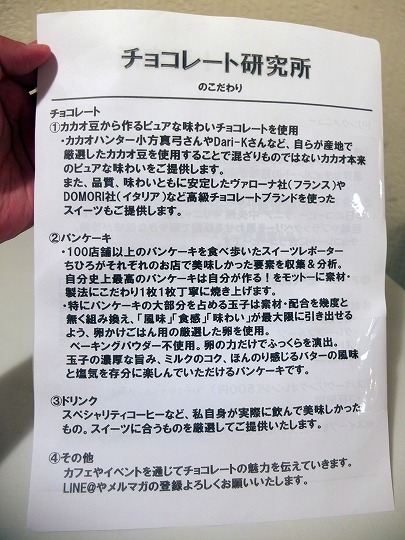 チョコレート研究所
のこだわり
チョコレート
①カカオ豆から作るピュアな味わいチョコレートを使用
・カカオハンター小方真弓さんやDari-Kさんなど、自らが産地で
厳選したカカオ豆を使用することで混ざりものではないカカオ本来
のピュアな味わいをご提供します。
また、品質、味わいともに安定したヴァローナ社(フランス)や
DOMORI社(イタリア)など高級チョコレートブランドを使った
スイーツもご提供します。
②パンケーキ
・100店舗以上のパンケーキを食べ歩いたスイーツレポーター
ちひろがそれぞれのお店で美味しかった要素を収集&分析。
自分史上最高のパンケーキは自分が作る!をモットーに素材・
製法にこだわり1枚1枚丁寧に焼き上げます。
・特にパンケーキの大部分を占める玉子は素材・配合を幾度と
無く組み換え、「風味」「食感」「味わい」が最大限に引き出せるよ
う、卵かけごはん用の厳選した卵を使用。
ベーキングパウダー不使用。卵の力だけでふっくらを演出。
玉子の濃厚な旨み、ミルクのコク、ほんのり感じるバターの風味
と塩気を存分に楽しんでいただけるパンケーキです。
③ドリンク
スペシャリティコーヒーなど、私自身が実際に飲んで美味しかった
もの。スイーツに合うものを厳選してご提供いたします。
④その他
カフェやイベントを通じてチョコレートの魅力を伝えていきます。
LINE@やメルマガの登録よろしくお願いいたします。